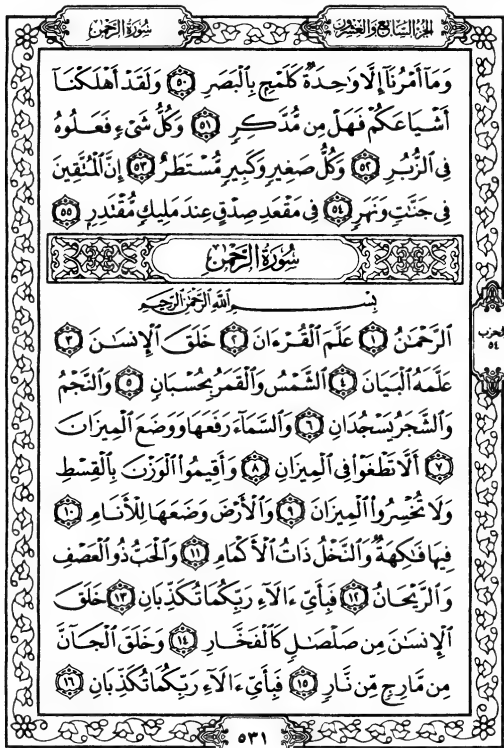 سُورَةُ الرَّحْمٰن
الجُزءُ السَّابِعُ وَالعِشْرُون
وَمَآ أَمْرُنَآ إِلَّا وَٰحِدَةٌ كَلَمْحٍۭ بِٱلْبَصَرِ ٥٠ وَلَقَدْ أَهْلَكْنَآ
أَشْيَاعَكُمْ فَهَلْ مِن مُّدَّكِرٍ ٥١ وَكُلُّ شَىْءٍ فَعَلُوهُ
فِى ٱلزُّبُرِ ٥٢ وَكُلُّ صَغِيرٍ وَكَبِيرٍ مُّسْتَطَرٌ ٥٣ إِنَّ ٱلْمُتَّقِينَ
فِى جَنَّٰتٍ وَنَهَرٍ ٥٤ فِى مَقْعَدِ صِدْقٍ عِندَ مَلِيكٍ مُّقْتَدِرٍۭ ٥٥
سُورَةُ الرَّحْمٰن
بِسْمِ ٱللَّهِ ٱلرَّحْمَٰنِ ٱلرَّحِيمِ
ٱلرَّحْمَٰنُ ١ عَلَّمَ ٱلْقُرْءَانَ ٢ خَلَقَ ٱلْإِنسَٰنَ ٣
عَلَّمَهُ ٱلْبَيَانَ ٤ ٱلشَّمْسُ وَٱلْقَمَرُ بِحُسْبَانٍ ٥ وَٱلنَّجْمُ
وَٱلشَّجَرُ يَسْجُدَانِ ٦ وَٱلسَّمَآءَ رَفَعَهَا وَوَضَعَ ٱلْمِيزَانَ
٧ أَلَّا تَطْغَوْا۟ فِى ٱلْمِيزَانِ ٨ وَأَقِيمُوا۟ ٱلْوَزْنَ بِٱلْقِسْطِ
وَلَا تُخْسِرُوا۟ ٱلْمِيزَانَ ٩ وَٱلْأَرْضَ وَضَعَهَا لِلْأَنَامِ ١٠
فِيهَا فَٰكِهَةٌ وَٱلنَّخْلُ ذَاتُ ٱلْأَكْمَامِ ١١ وَٱلْحَبُّ ذُو ٱلْعَصْفِ
وَٱلرَّيْحَانُ ١٢ فَبِأَىِّ ءَالَآءِ رَبِّكُمَا تُكَذِّبَانِ ١٣ خَلَقَ
ٱلْإِنسَٰنَ مِن صَلْصَٰلٍ كَٱلْفَخَّارِ ١٤ وَخَلَقَ ٱلْجَآنَّ
مِن مَّارِجٍ مِّن نَّارٍ ١٥ فَبِأَىِّ ءَالَآءِ رَبِّكُمَا تُكَذِّبَانِ ١٦
الحزب
٥٤
٥٣١